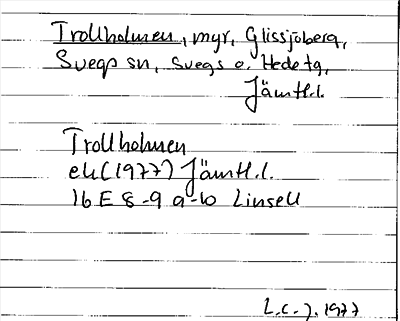 Trollholmen, myr, Glissjöberg,
Svegs sn, Svegs o. Hede tg,
Jämtl.l.
Trollholmen
ek (1977) Jämtl.l.
16 E 8-9 a-b Linsell
L.C.J. 1977